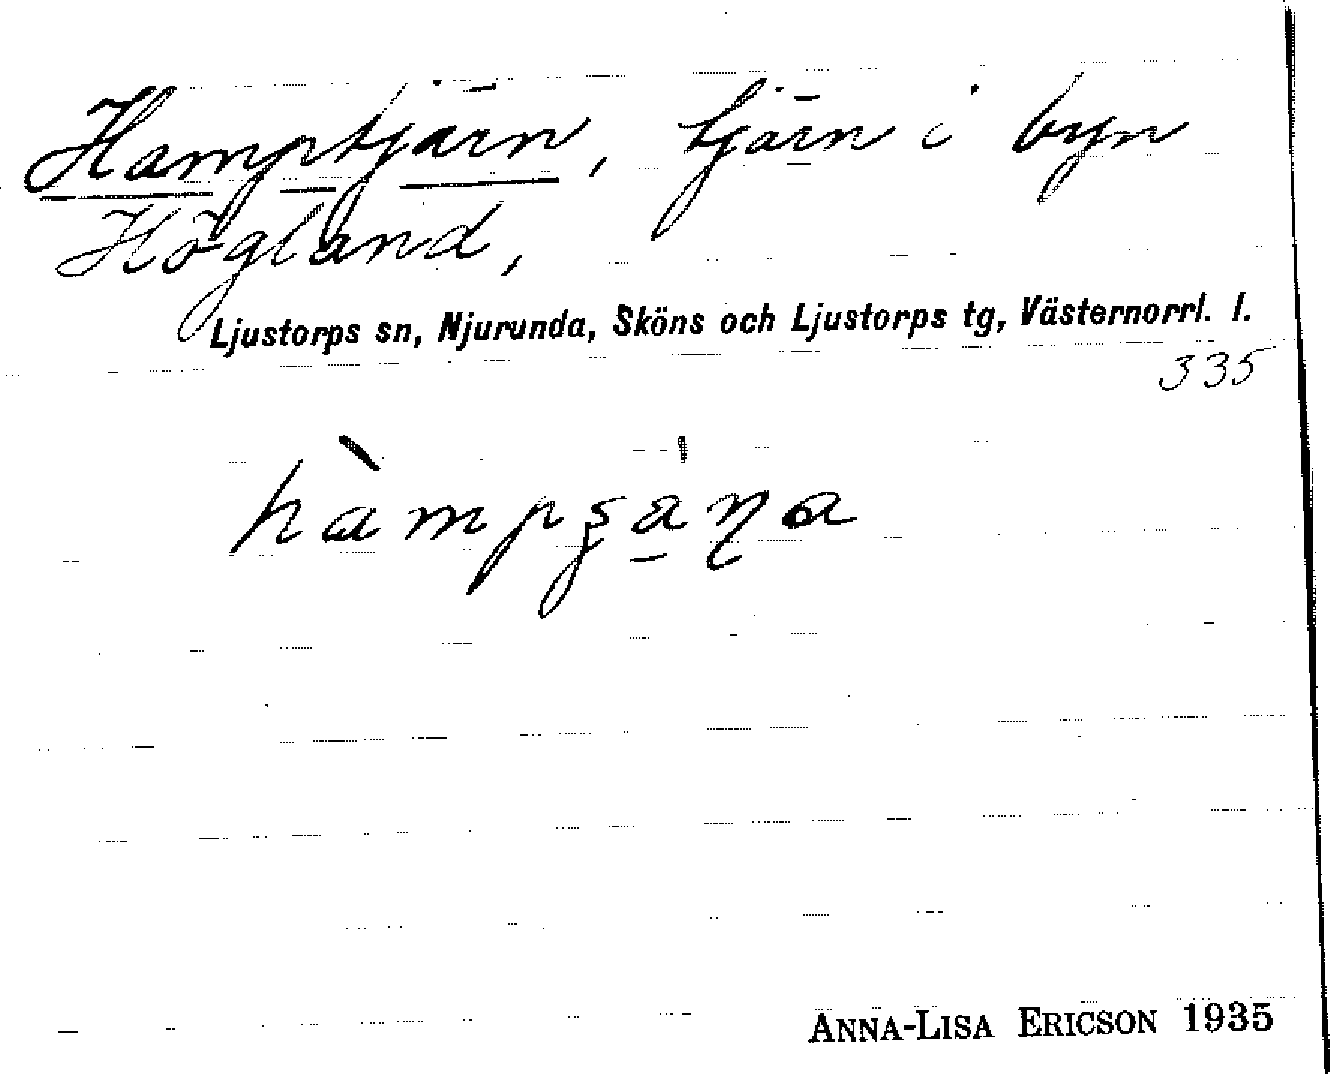 Hamptjärn, tjärn i byn
Högland,
Ljustorps sn, Njurunda, Sköns och Ljustorps tg, Västernorrl. l.
335
ANNA-LISA ERICSON 1935